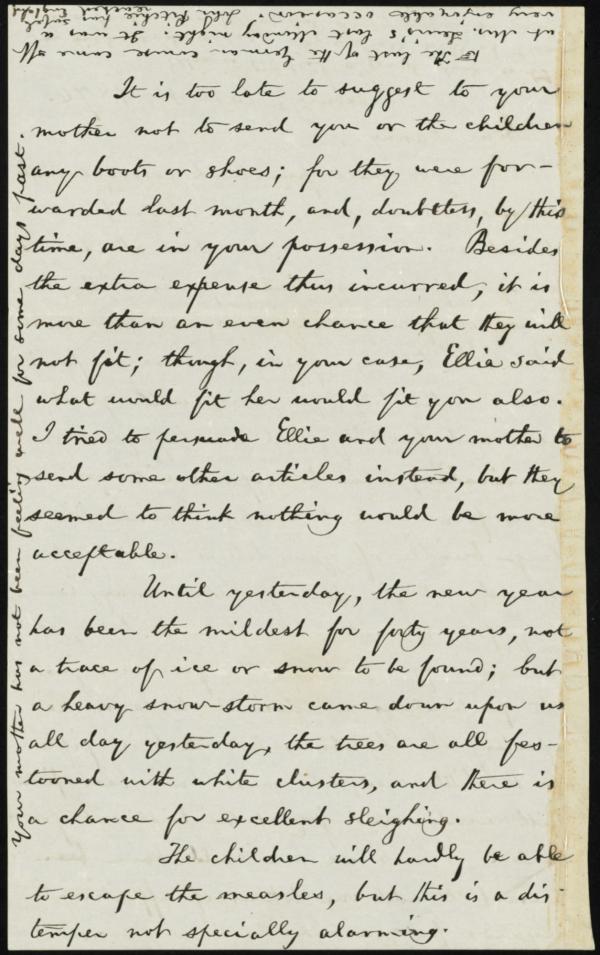 It is too late to suggest to your
mother not to send you or the children
any boots or shoes; for they were for-
warded last month, and, doubtless, by this
time, are in your possession. Besides
the extra expense thus incurred, it is
more than an even chance that they will
not fit; though, in your case, Ellie said
what would fit her would fit you also.
I tried to persuade Ellie and your mother to
send some other articles instead, but they
seemed to think nothing would be more
acceptable.
Until yesterday, the new year
has been the mildest for forty years, not
a trace of ice or snow to be found; but
a heavy snow-storm came down upon us
all day yesterday, the trees are all fes-
tooned with white clusters, and there is
a chance for excellent sleighing.
The children will hardly be able
to escape the measles, but this is a dis-
temper not specially alarming.
Your mother has not been feeling well for some days past.
The last of the German course came off
at Mrs. last Monday night. It was a
very enjoyable occasion. John Ritchie has safely
reached England